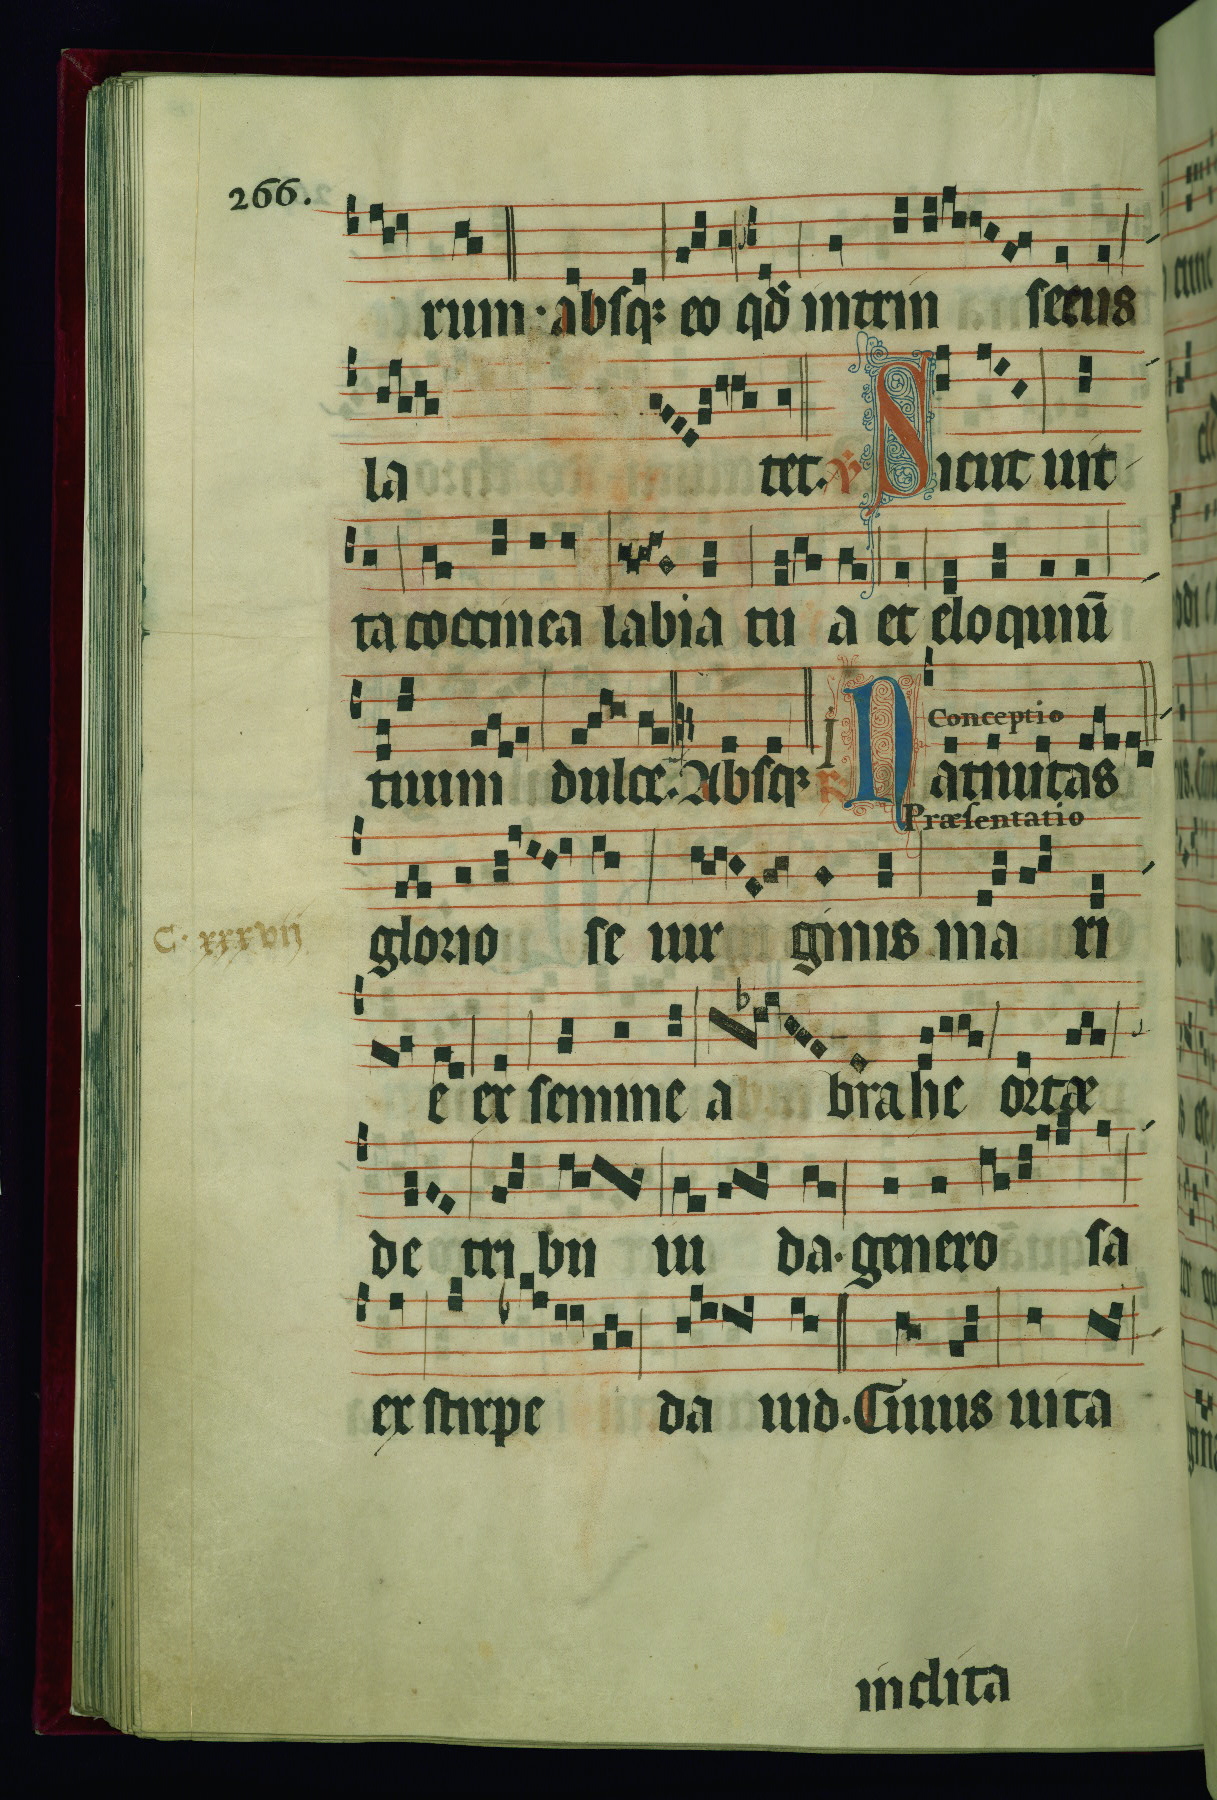 266.
rum· absqꝫ eo qđ intrin secus
la tet. ℣ Sicut uit
ta coccinea labia tu a et eloquiū
tuum dulce. Absqꝫ I
Conceptio
℟ Natiuitas
Præsentatio
glorio se uir ginis ma ri
C· xxxvij
e ex semine a brahe ortæ
de tri bu iu da· genero sa
ex stirpe da uid. Cuius uita
inclita